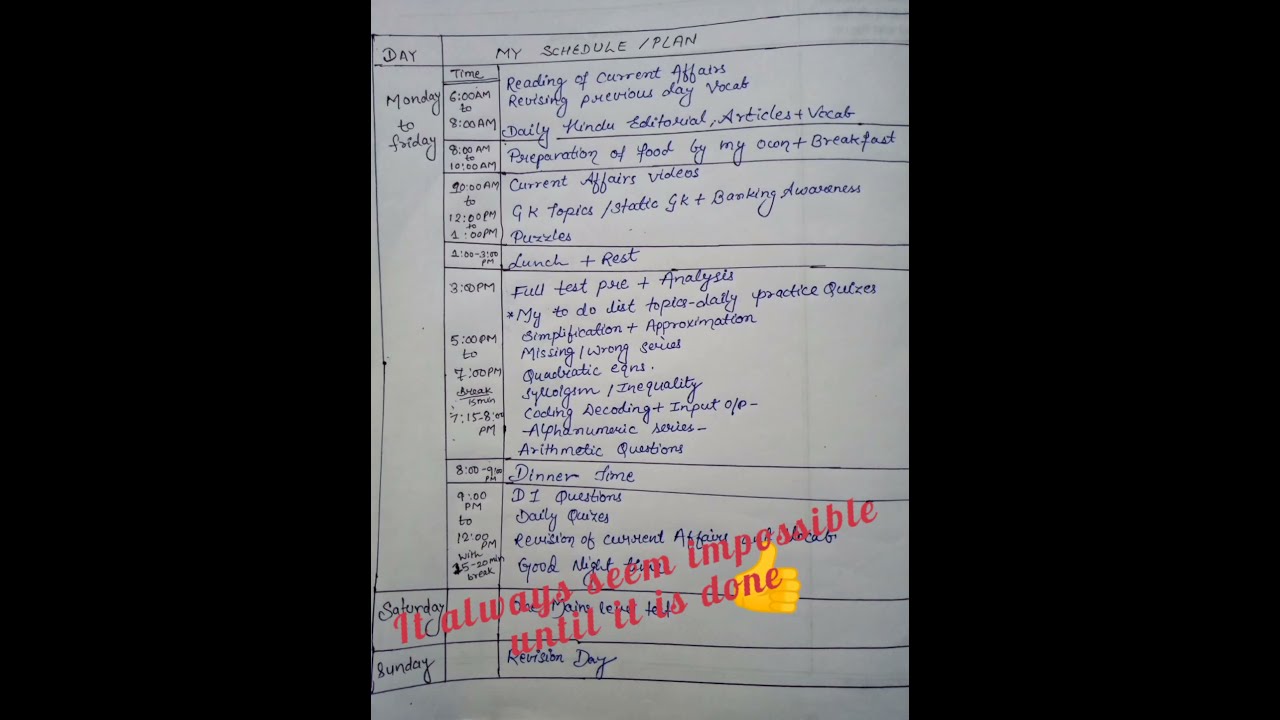 DAY MY SCHEDULE/PLAN
Time
Monday
to
friday
6:00AM
to
8:00AM
Reading of Current Affairs
Revising previous day Vocab
Daily Hindu Editorial, Articles + Vocab
8:00AM
to
10:00AM
Preparation of food by my own + Breakfast
10:00AM
to
12:00PM
to
1:00PM
Current Affairs videos
GK Topics /Static GK + Banking Awareness
Puzzles
1:00-3:00
PM
Lunch + Rest
3:00PM
Full test pre + Analysis
*My to do list topics-daily practice Quizes
5:00PM
to
7:00PM
Break
15min
7:15-8:00
PM
Simplification + Approximation
Missing/Wrong series
Quadratic eqns.
Syllolgsm /Inequality
Coding Decoding + Input O/P-
-Alphanumeric series-
Arithmetic Questions
8:00-9:00
PM
Dinner Time
9:00
PM
to
12:00
PM
with
15-20min
break
DI Questions
Daily Quizes
Revision of current Affairs and Vocab.
Good Night time
Saturday
Mains level test
Sunday
Revision Day
It always seem impossible
until it is done